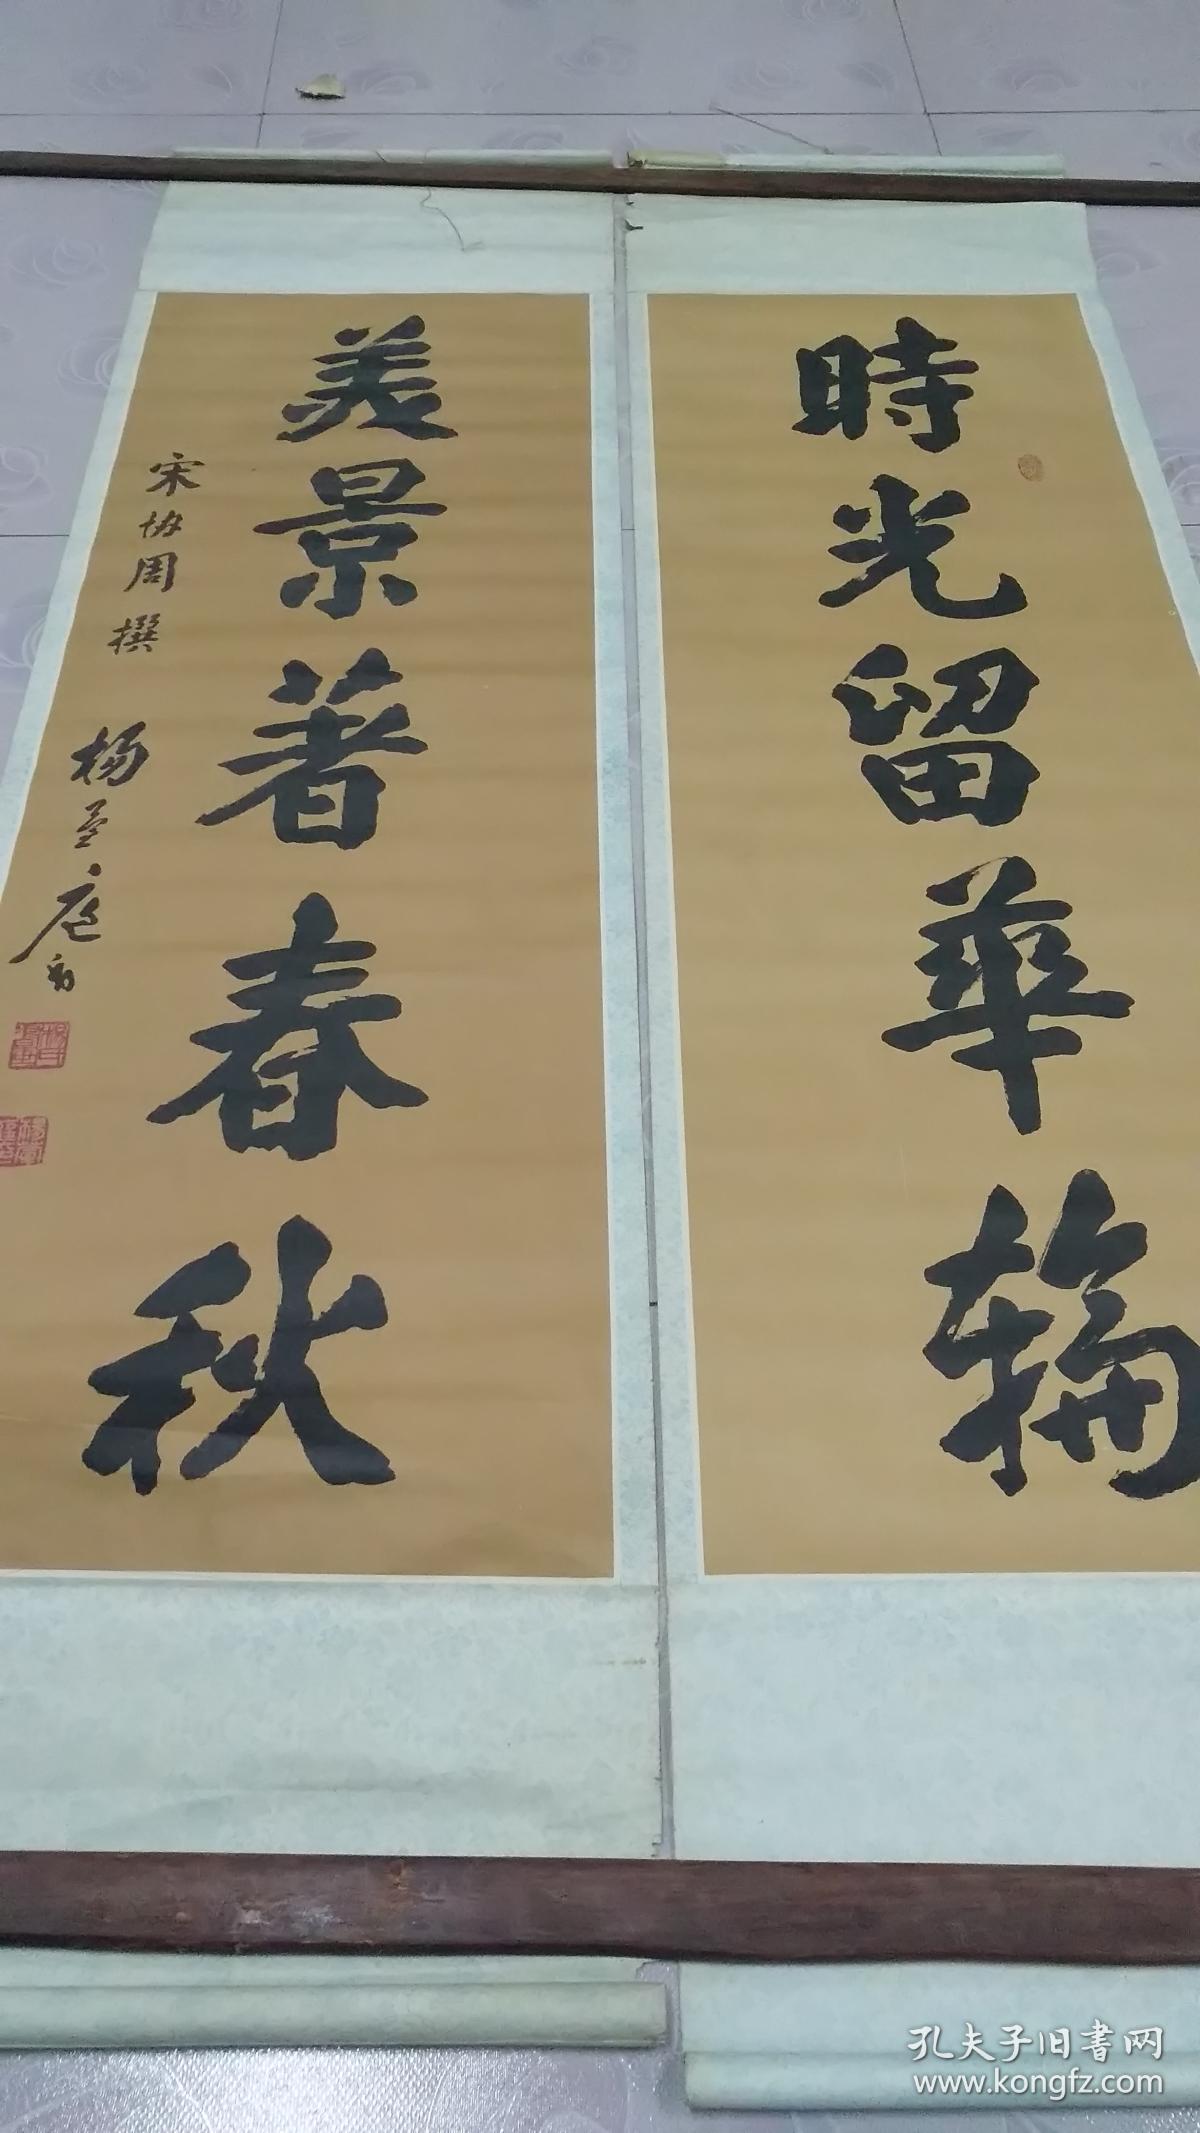 時光留華輪
美景著春秋
宋协周撰
孔夫子旧書网
www.kongfz.com